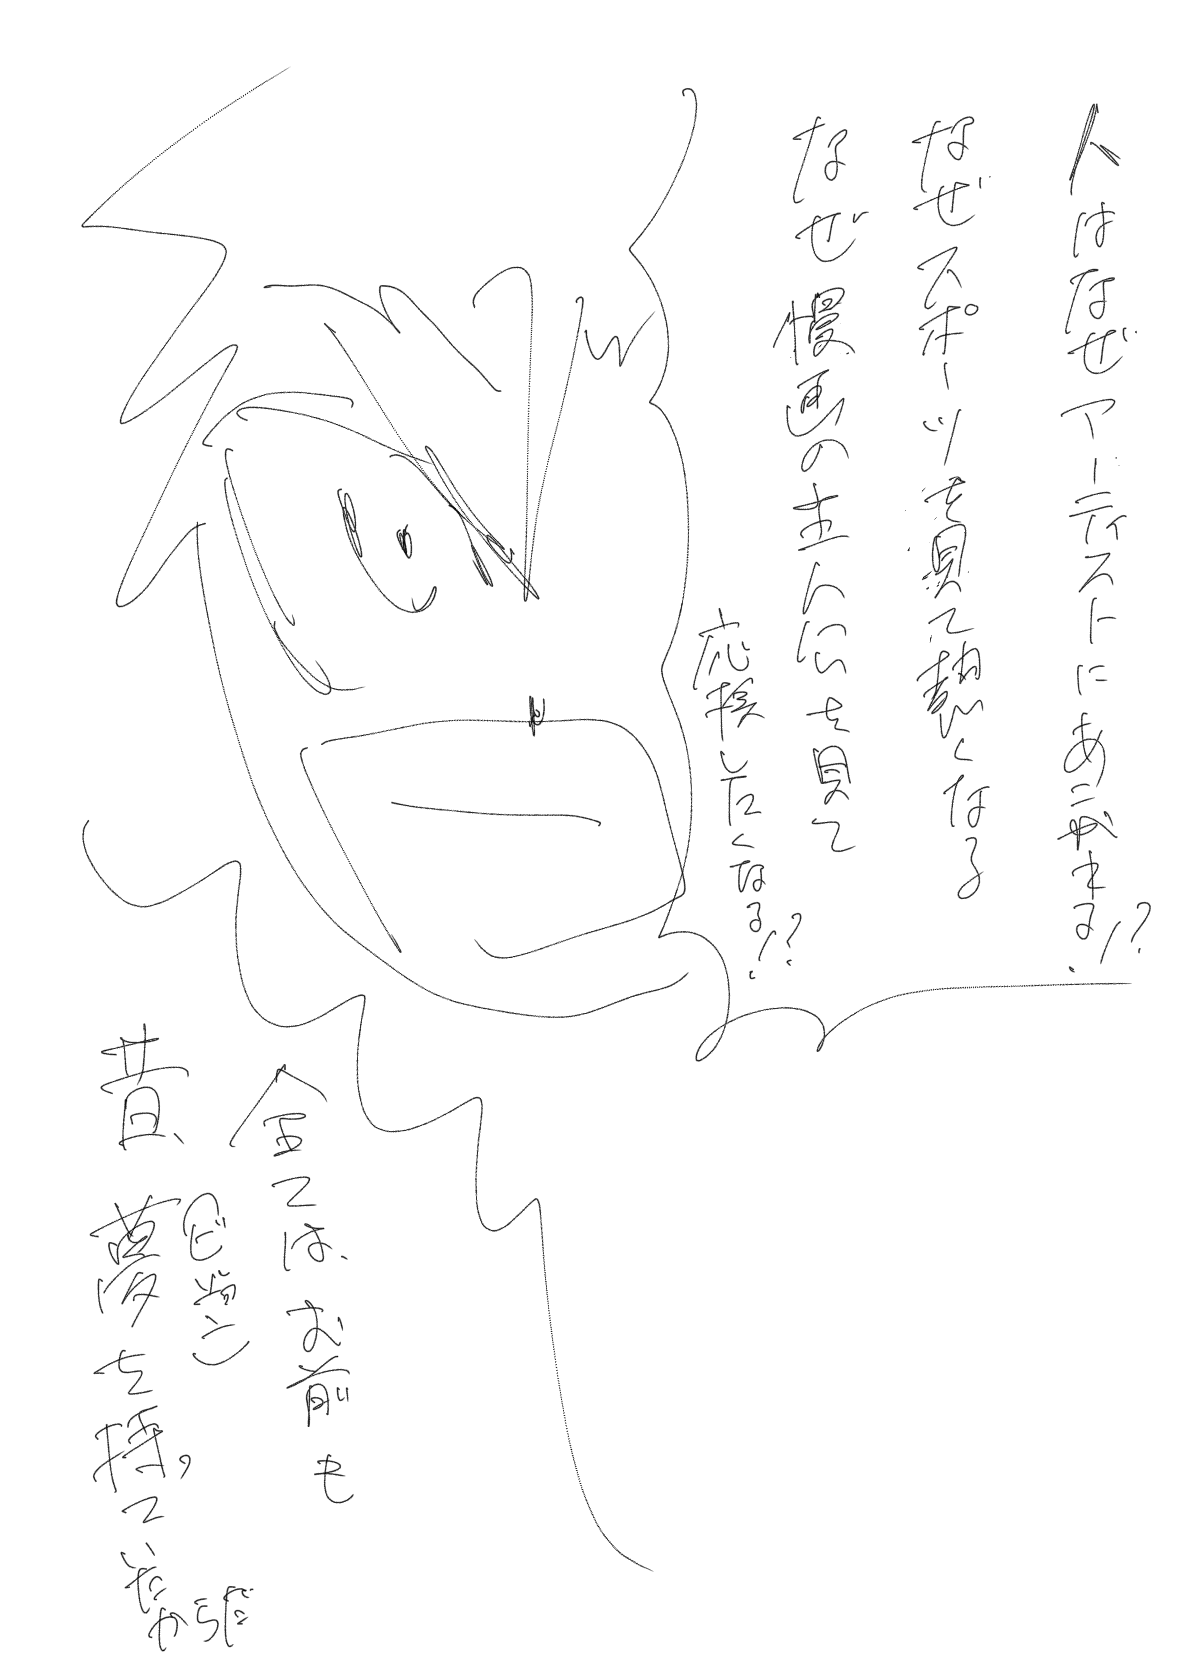 人はなぜアーティストにあこがれる!?
なぜスポーツを見て熱くなる
なぜ漫画の主人公を見て
応援したくなる!?
全ては、お前も
昔、夢を持っていたからだ